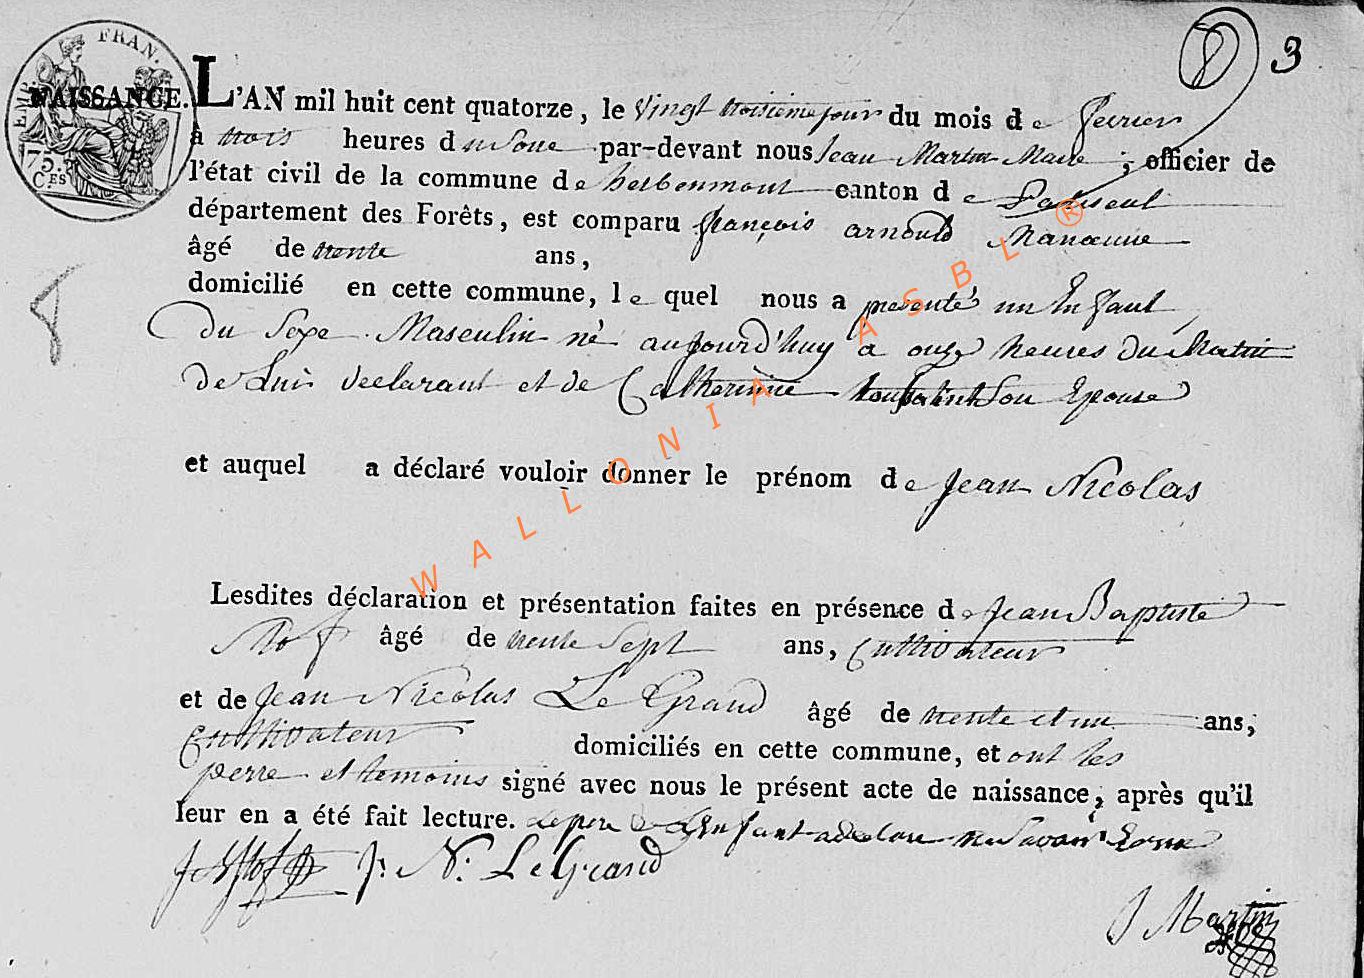 8 3
EMP. FRAN.
75. C.ES
NAISSANCE. L'AN mil huit cent quatorze, le vingt troisieme jour du mois de fevrier
à trois heures du Soire par-devant nous Jean Martin Maire ; officier de
l'état civil de la commune de herbeumont canton de Paliseul
département des Forêts, est comparu françois arnould Manoeuvre
âgé de trente ans,
domicilié en cette commune, le quel nous a presentés un Enfant
8
du Sexe Masculin né aujourd'huy a onze heures du Matin
de Lui declarant et de Catherinne toussaint Son Epouse
et auquel a déclaré vouloir donner le prénom de Jean Nicolas
Lesdites déclaration et présentation faites en présence de Jean Baptiste
âgé de trente Sept ans, Cultivateur
et de Jean Nicolas Le Grand âgé de trente et un ans,
Cultivateur domiciliés en cette commune, et ont les
perre et temoins signé avec nous le présent acte de naissance, après qu'il
leur en a été fait lecture. Le pere de L'Enfant a declare ne Savoir
J: N: Le Grand
J Martin
WALLONIA ASBL ®